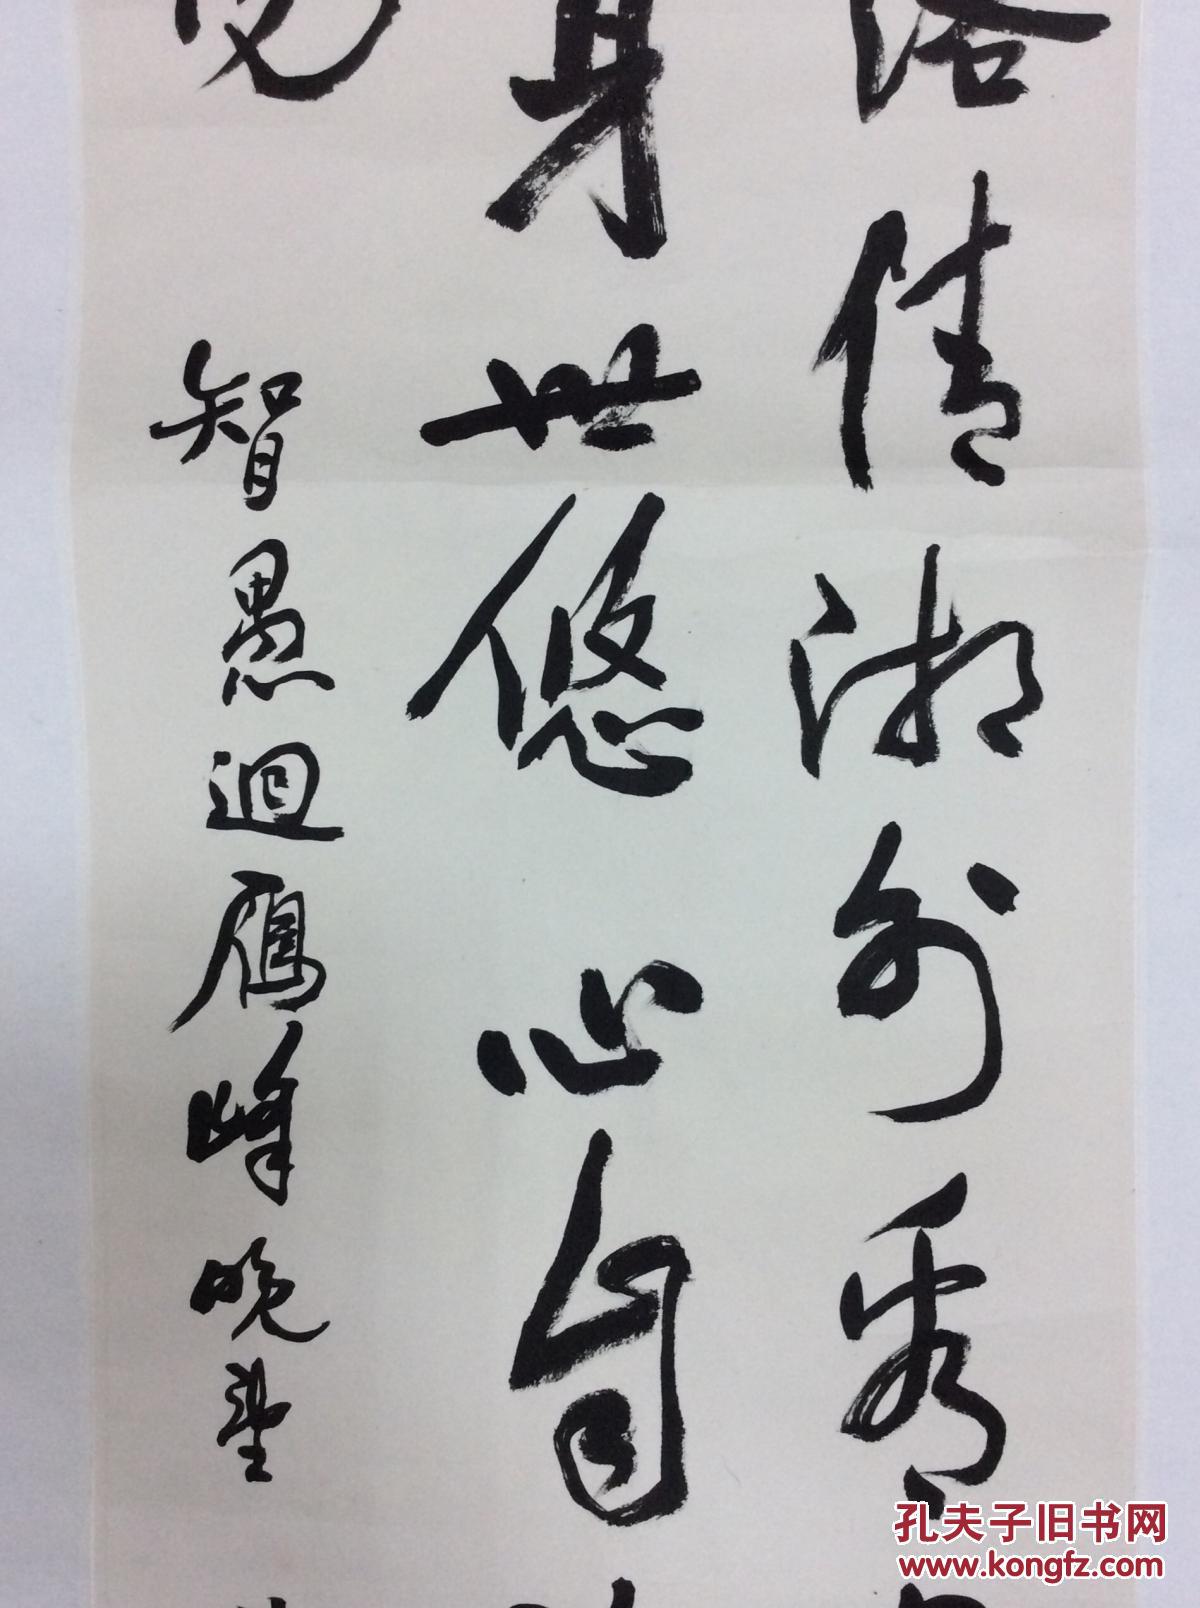 倩湖外看
身世悠心自
智愚迴雁峰晚望
孔夫子旧书网
www.kongfz.com